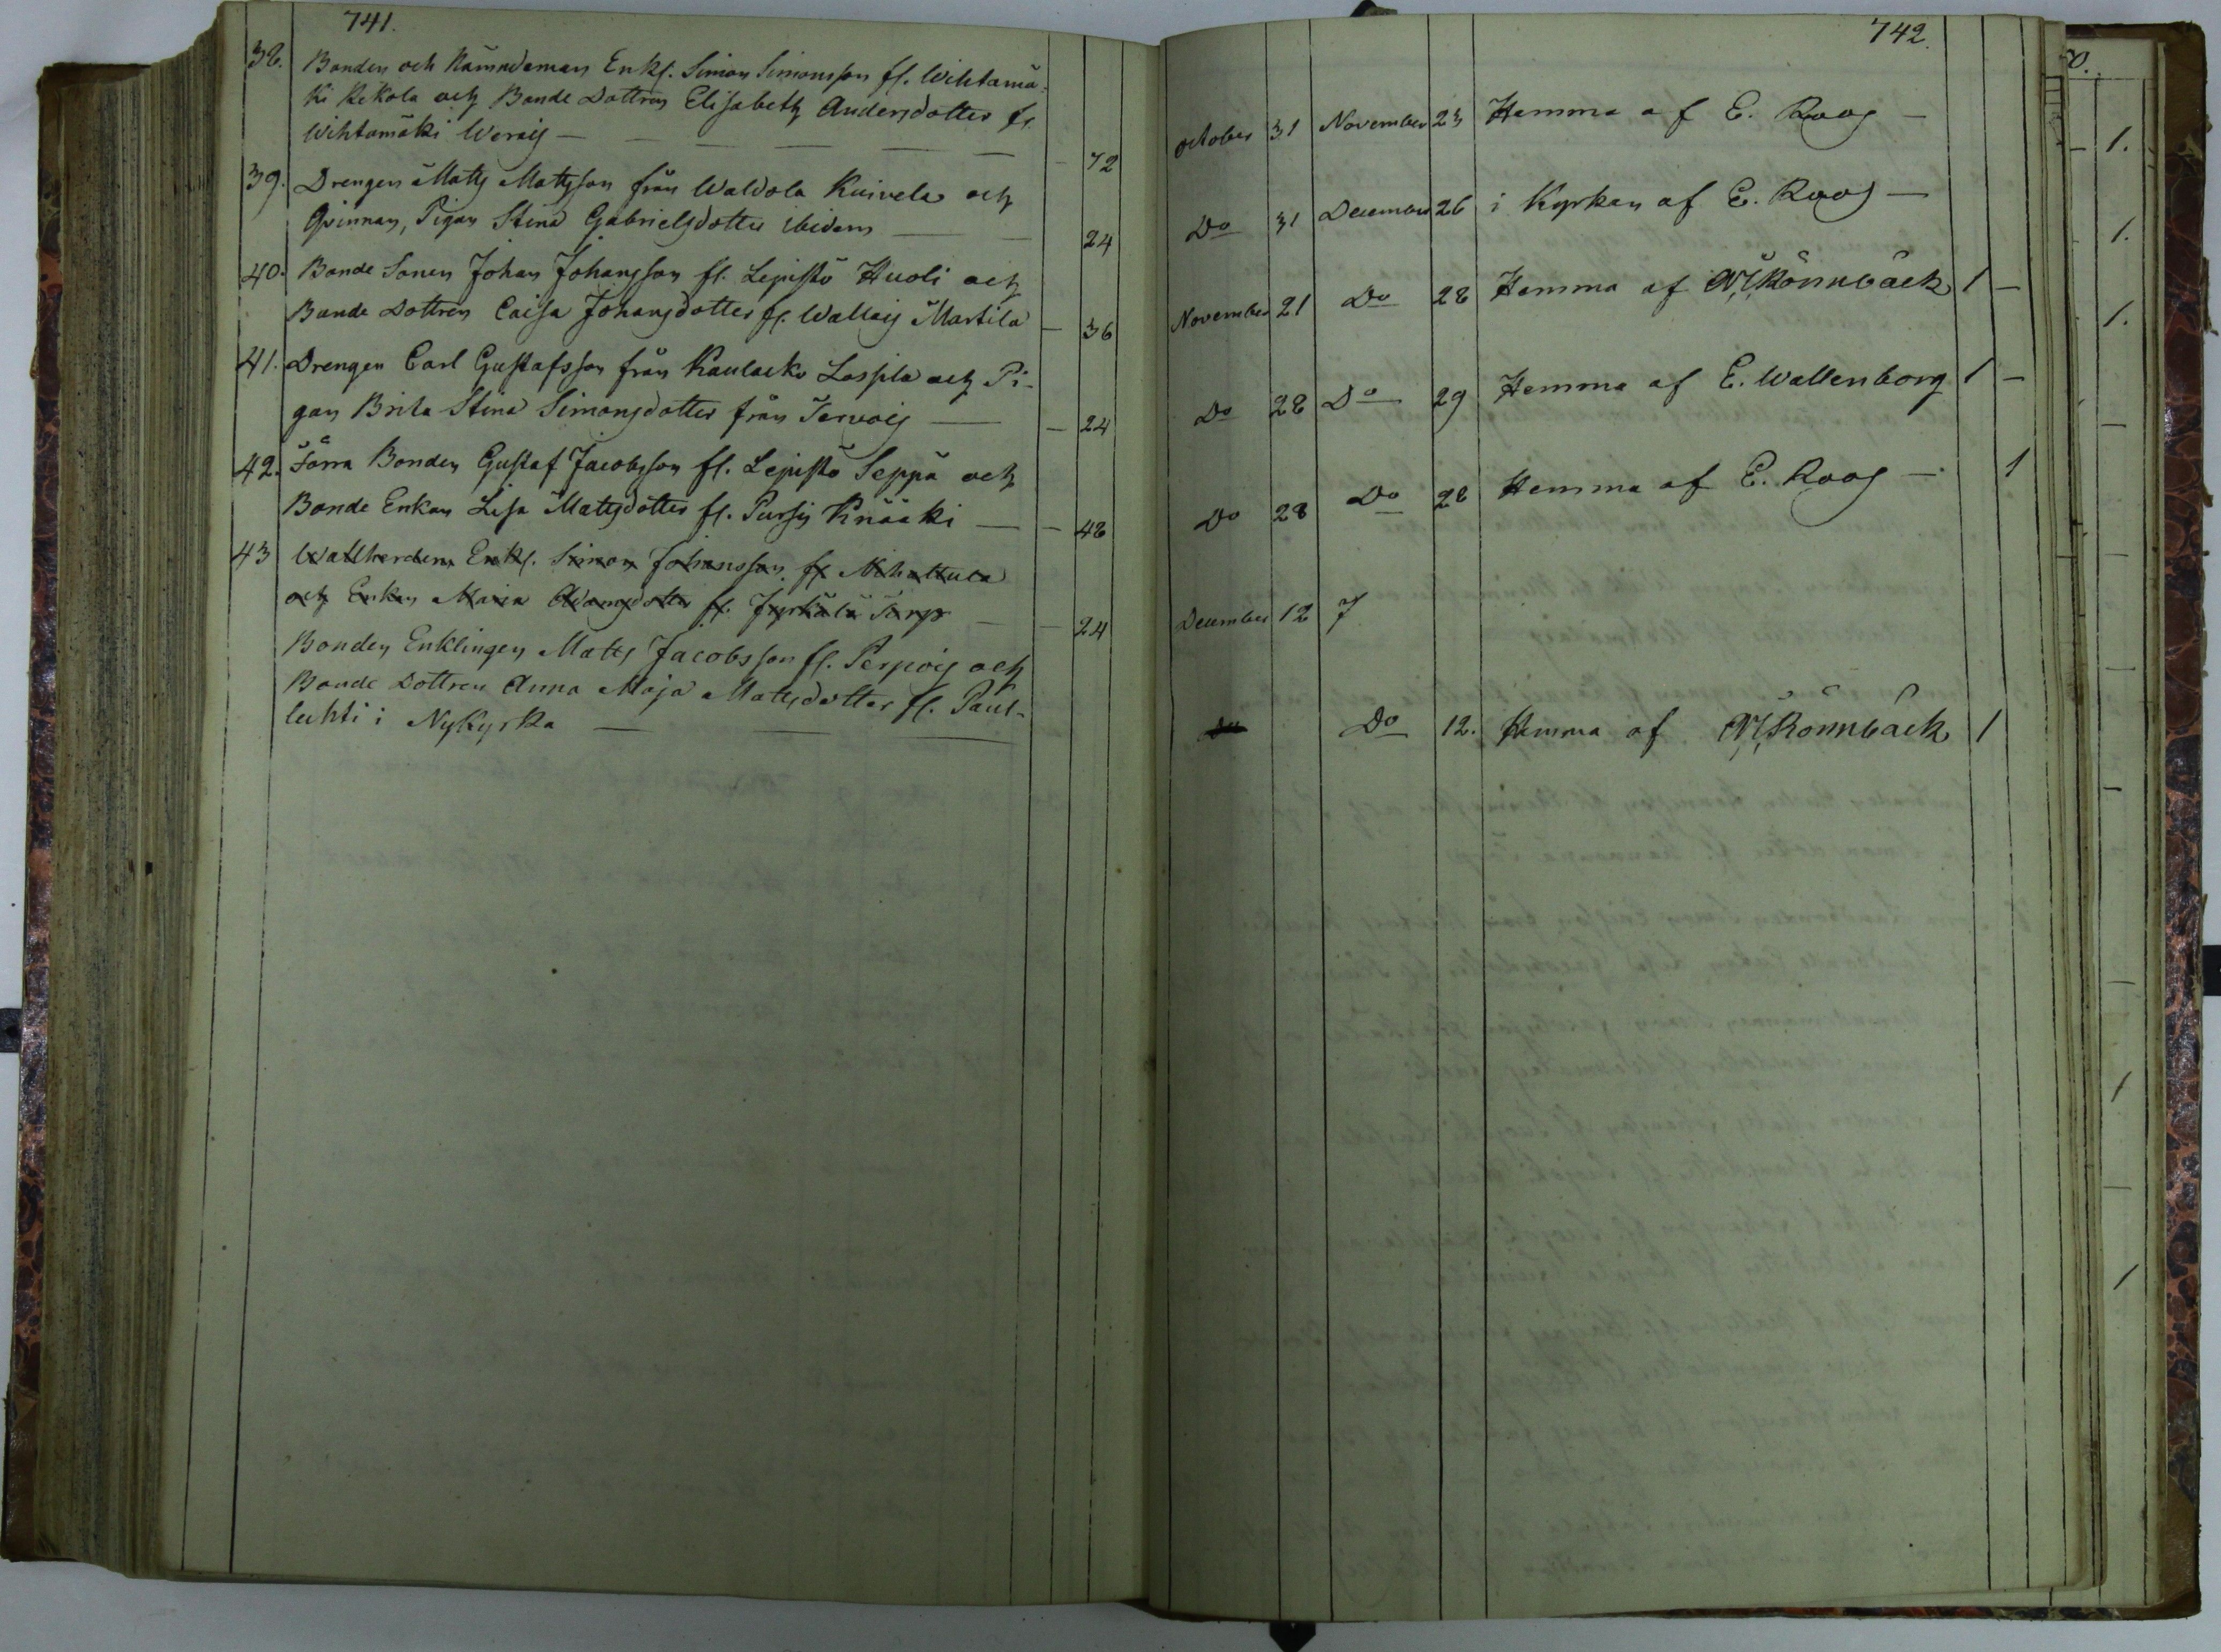 741.
38. Bonden och Nämndeman Enkl. Simon Simonsson fl. Wihtamä-
ki Kekola och Bonde Dottren Elisabeth Andersdotter fl.
Wihtamäki Weraig — 72
39. Drengen Matts Mattsson från Waldola Kuivela och
Qvinnan, Pigan Stina Gabrielsdotter ibidem — 24
40. Bonde Sonen Johan Johansson fl. Lepistö Huoli och
Bonde Dottren Caisa Johansdotter fl. Wallaig Martila — 36
41. Drengen Carl Gustafsson från Kaulacko Laspila och Pi-
gan Brita Stina Simonsdotter från Tervoig — 24
42. Förra Bonden Gustaf Jacobsson fl. Lepistö Seppä och
Bonde Enkan Lisa Mattsdotter fl. Pursij Knääki — 48
43 Wallherden Enkl. Simon Johansson fl Nihattula
och Enkan Maria Adamsdotter fl. Jyrkälä Torp — 24
Bonden Enklingen Matts Jacobsson fl. Perpoig och
Bonde Dottren Anna Maja Mattsdotter fl. Paul-
luhti i Nykyrka —
742.
October 31 November 23 Hemma af E. Roos —
Do 31 December 26 i Kyrkan af E. Roos —
November 21 Do 28 Hemma af N. Rönnbäck 1 —
Do 28 Do 29 Hemma af E. Wallenborg 1 —
Do 28 Do 28 Hemma af E. Roos — 1
December 12
Do 12. Hemma af N. Rönnbäck 1
1.
1.
1.
1
1